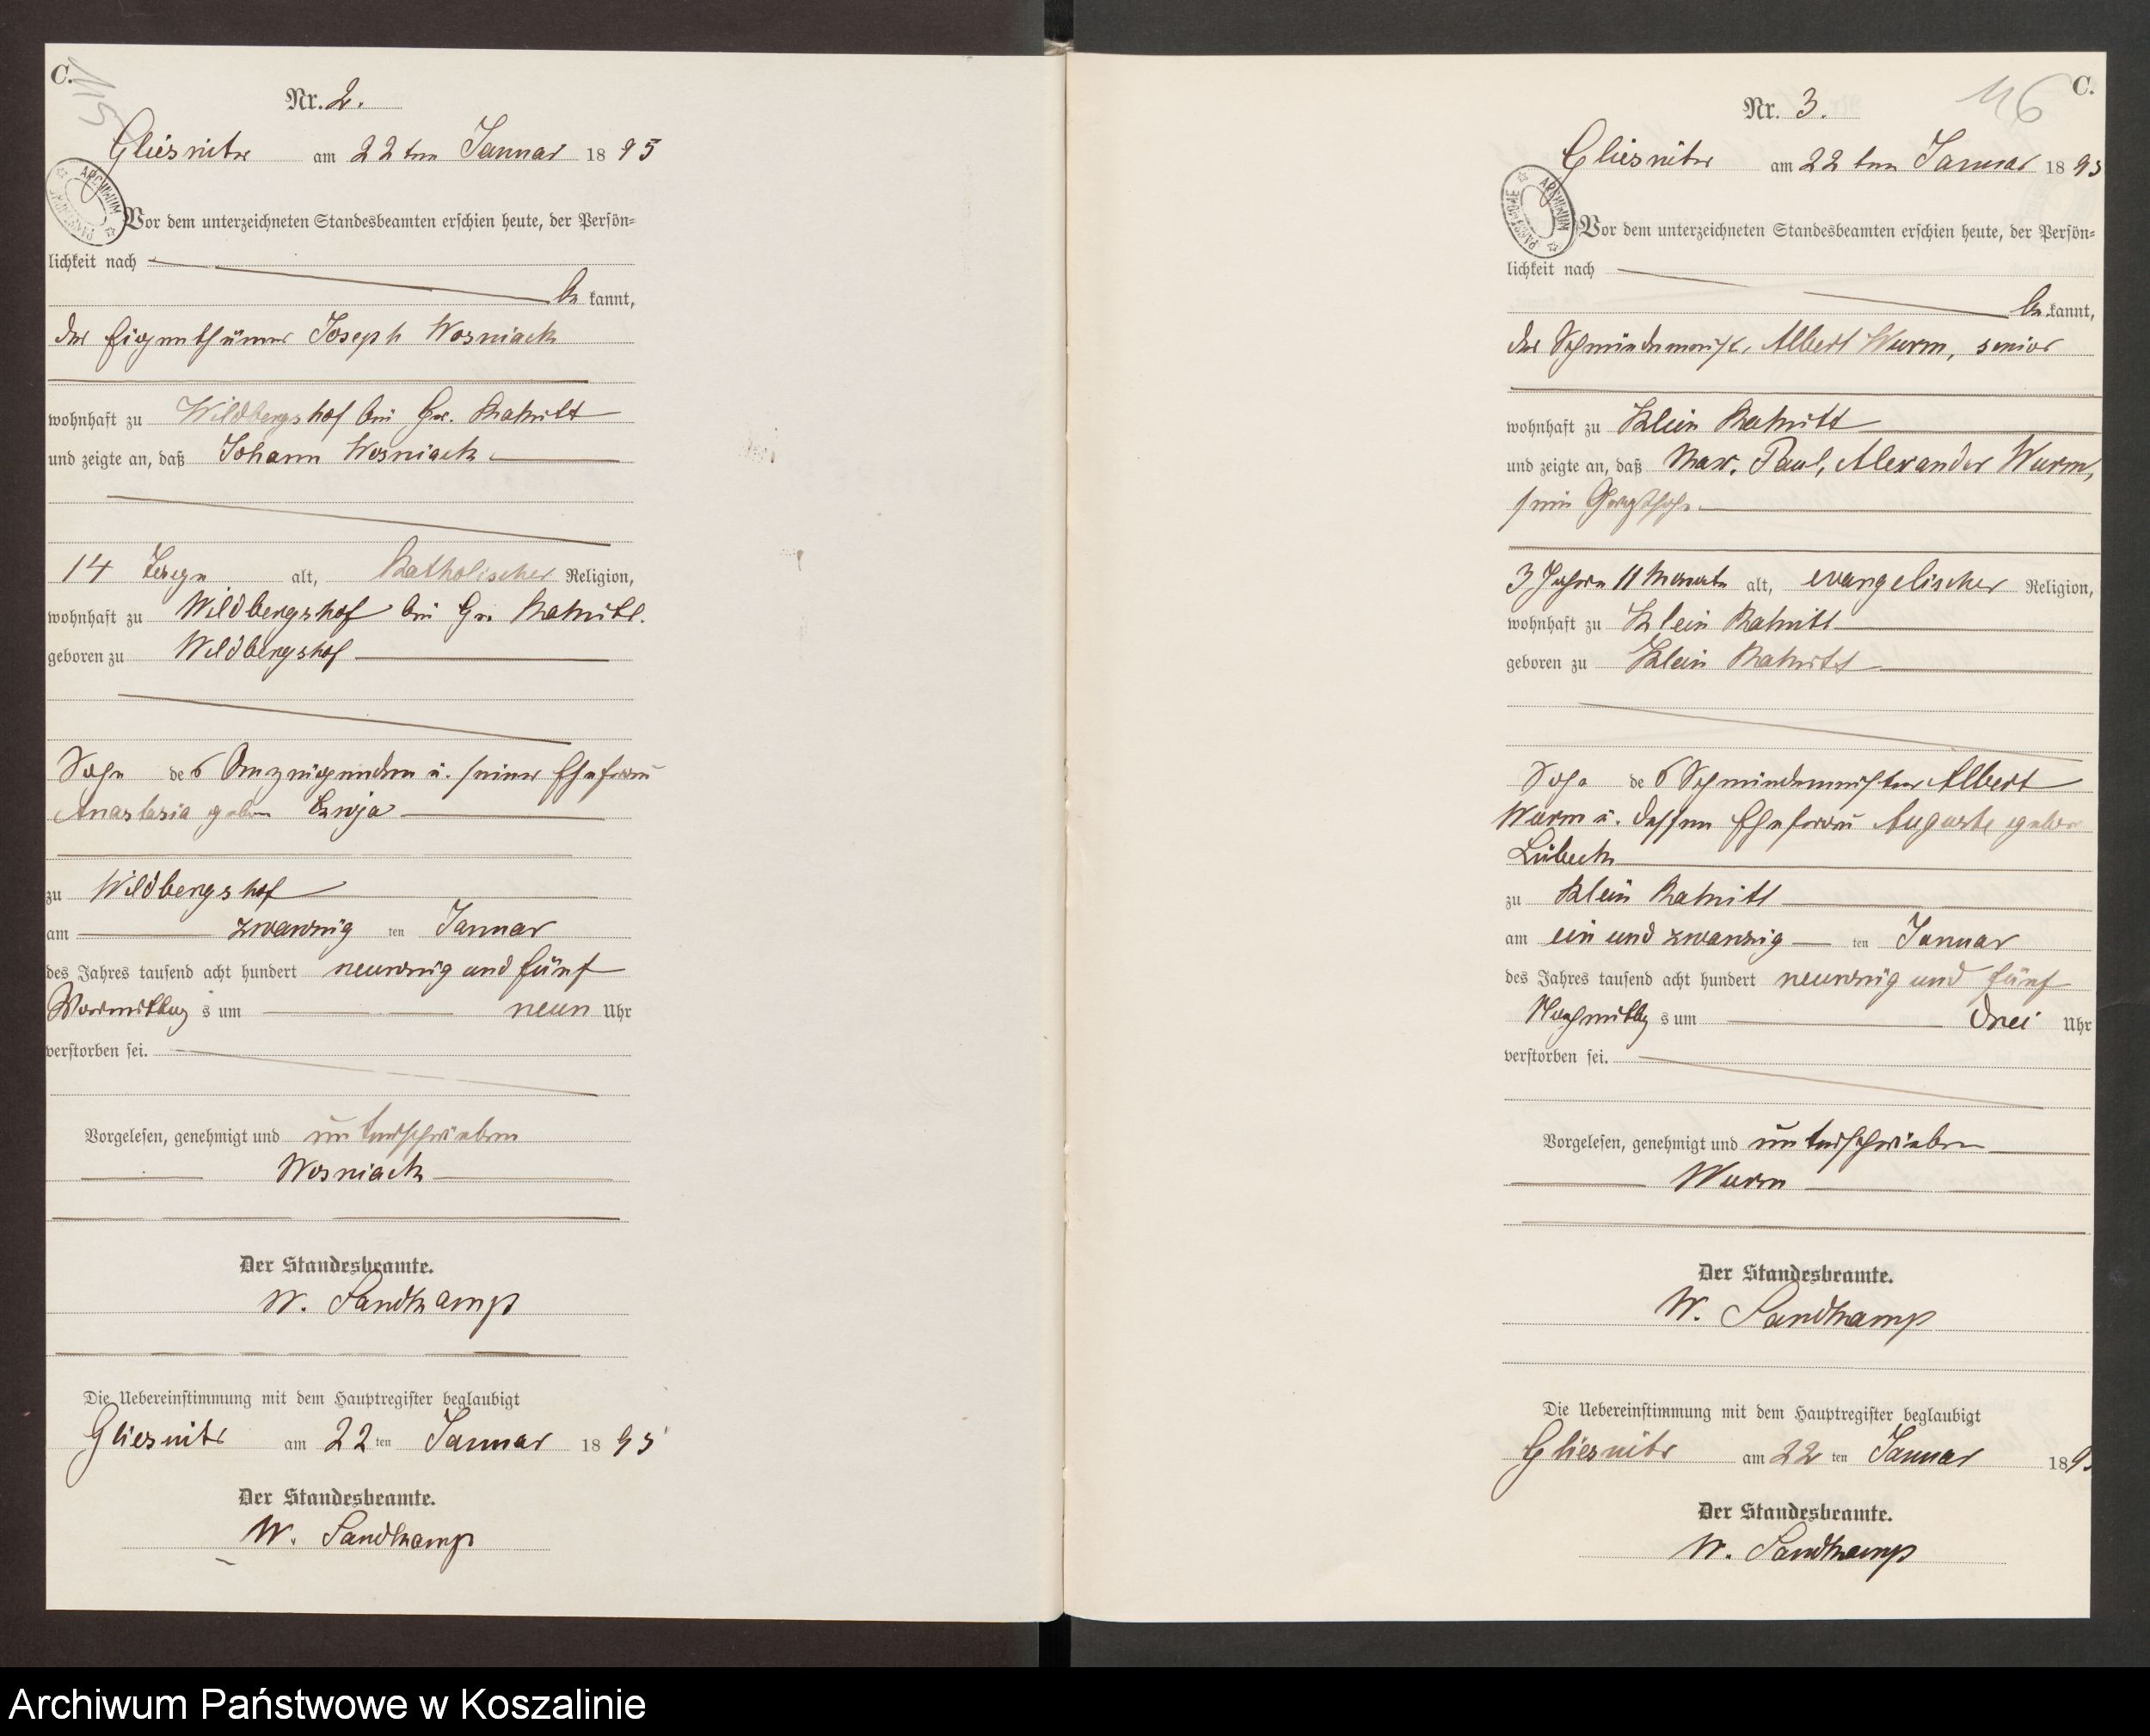 C.
115
Nr. 2.
Gliesnitz am 22ten Januar 1895
ARCHIWUM PAŃSTWOWE
Vor dem unterzeichneten Standesbeamten erschien heute, der Persön=
lichkeit nach
be kannt,
der Eigenthümer Joseph Wosniack
wohnhaft zu Wildbergshof bei Gr.
und zeigte an, daß Johann Wosniack
14 Tage alt, Katholischer Religion,
wohnhaft zu Wildbergshof bei Gr.
geboren zu Wildbergshof
Sohn des Anzeigenden u. seiner Ehefrau
Anastasia geborn
zu Wildbergshof
am zwanzig ten Januar
des Jahres tausend acht hundert neunzig und fünf
Vormittag s um neun Uhr
verstorben sei.
Vorgelesen, genehmigt und unterschrieben
Wosniack
Der Standesbeamte.
W. Sandkamp
Die Uebereinstimmung mit dem Hauptregister beglaubigt
Gliesnitz am 22 ten Januar 1895
Der Standesbeamte.
W. Sandkamp
116
C.
Nr. 3.
Gliesnitz am 22ten Januar 1895
ARCHIWUM PAŃSTWOWE
Vor dem unterzeichneten Standesbeamten erschien heute, der Persön=
lichkeit nach
be kannt,
der Albert Wurm, senior
wohnhaft zu Klein
und zeigte an, daß Max, Paul, Alexander Wurm,
sein
3 Jahre 11 Monate alt, evangelischer Religion,
wohnhaft zu Klein
geboren zu Klein
Sohn des Albert
Wurm u. dessen Ehefrau Auguste gebor
Lübeck
zu Klein
am ein und zwanzig ten Januar
des Jahres tausend acht hundert neunzig und fünf
Nachmittag s um drei Uhr
verstorben sei.
Vorgelesen, genehmigt und unterschrieben
Wurm
Der Standesbeamte.
W. Sandkamp
Die Uebereinstimmung mit dem Hauptregister beglaubigt
Gliesnitz am 22 ten Januar 189
Der Standesbeamte.
W. Sandkamp
Archiwum Państwowe w Koszalinie